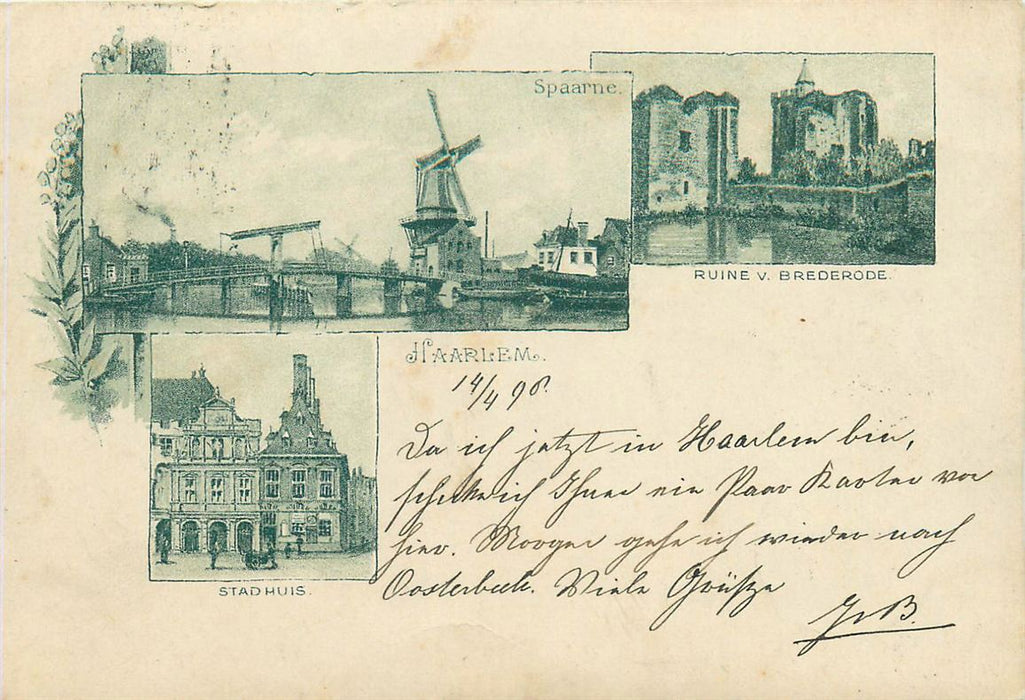 Spaarne.
RUINE V. BREDERODE.
HAARLEM.
14/4 98.
Da ich jetzt in Haarlem bin,
schicke ich Ihnen ein Paar Karten von
hier. Morgen gehe ich wieder nach
Oosterbeek. Viele Grüsze
STADHUIS.